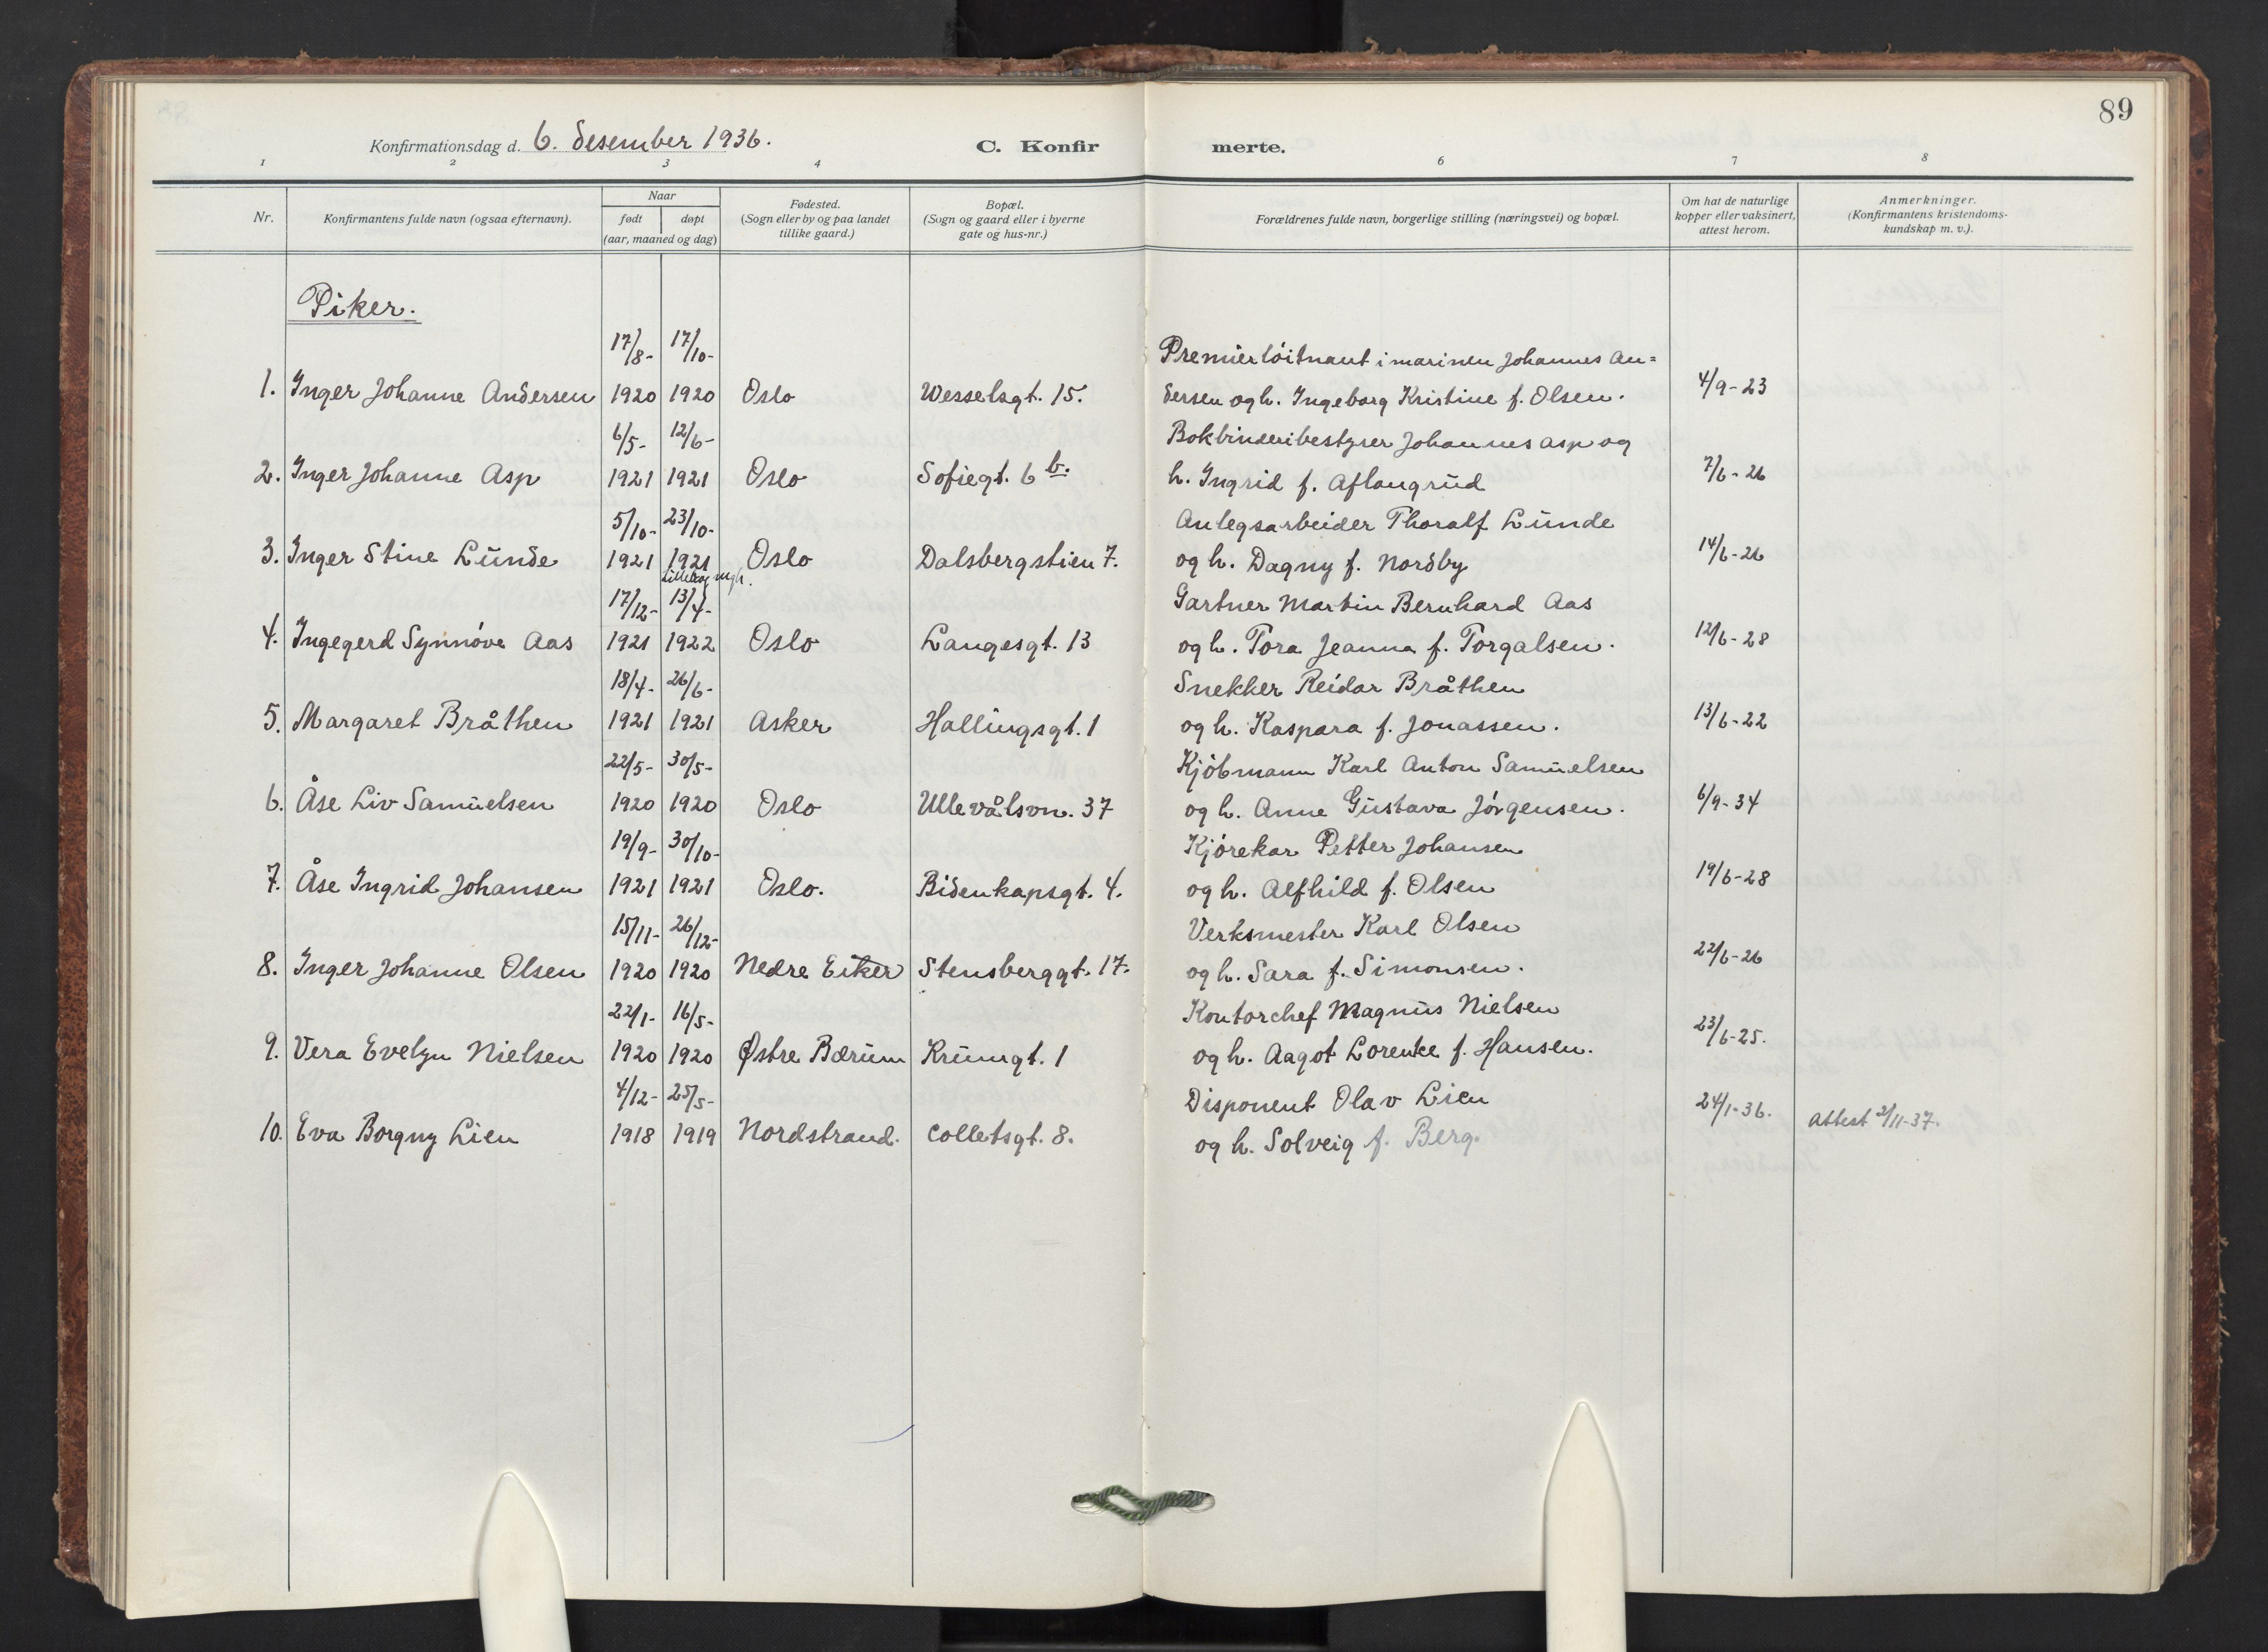 89
Konfirmationsdag d. 6. desember 1936.
C. Konfir merte.
1 2 3 4 6 7 8
Nr.
Konfirmantens fulde navn (ogsaa efternavn).
Naar
født døpt
(aar, maaned og dag)
Fødested.
(Sogn eller by og paa landet
tillike gaard.)
Bopæl.
(Sogn og gaard eller i byerne
gate og hus-nr.)
Forældrenes fulde navn, borgerlige stilling (næringsvei) og bopæl.
Om hat de naturlige
kopper eller vaksinert,
attest herom.
Anmerkninger.
(Konfirmantens kristendoms-
kundskap m. v.).
Piker.
17/8- 17/10- Premierlöitnant i marinen Johannes An=
1. Inger Johanne Andersen 1920 1920 Oslo Wesselsgt. 15. dersen og h. Ingeborg Kristine f. Olsen. 4/9-23
6/5- 12/6- Bokbinderibestyrer Johannes Asp og
2. Inger Johanne Asp 1921 1921 Oslo Sofiegt. 6 b. h. Ingrid f. Aflangrud 7/6-26
5/10- 23/10- Anlegsarbeider Thoralf Lunde
3. Inger Stine Lunde 1921 1921 Oslo Dalsbergstien 7. og h. Dagny f. Nordby 14/6-26
17/12- 13/4- Gartner Martin Bernhard Aas
4. Ingegerd Synnöve Aas 1921 1922 Oslo Langesgt. 13 og h. Tora Jeanna f. Torgalsen. 12/6-28
18/4- 26/6- Snekker Reidar Bråthen
5. Margaret Bråthen 1921 1921 Asker Hallingsgt. 1 og h. Kaspara f. Jonassen. 13/6-22
22/5- 30/5- Kjöbmann Karl Anton Samuelsen
6. Åse Liv Samuelsen 1920 1920 Oslo Ullevålsvn. 37 og h. Anne Gustava Jörgensen. 6/9-34
19/9- 30/10- Kjörekar Petter Johansen
7. Åse Ingrid Johansen 1921 1921 Oslo. Bidenkapsgt. 4. og h. Alfhild f. Olsen 19/6-28
15/11- 26/12- Verksmester Karl Olsen
8. Inger Johanne Olsen 1920 1920 Nedre Eiker Stensberggt. 17. og h. Sara f. Simonsen. 22/6-26
22/1- 16/5- Kontorchef Magnus Nielsen
9. Vera Evelyn Nielsen 1920 1920 Østre Bærum Krumgt. 1 og h. Aagot Lorentze f. Hansen. 23/6-25.
4/12- 25/5- Disponent Olav Lien
10. Eva Borgny Lien 1918 1919 Nordstrand. Colletsgt. 8. og h. Solveig f. Berg. 24/1-36. Attest 2/11-37.